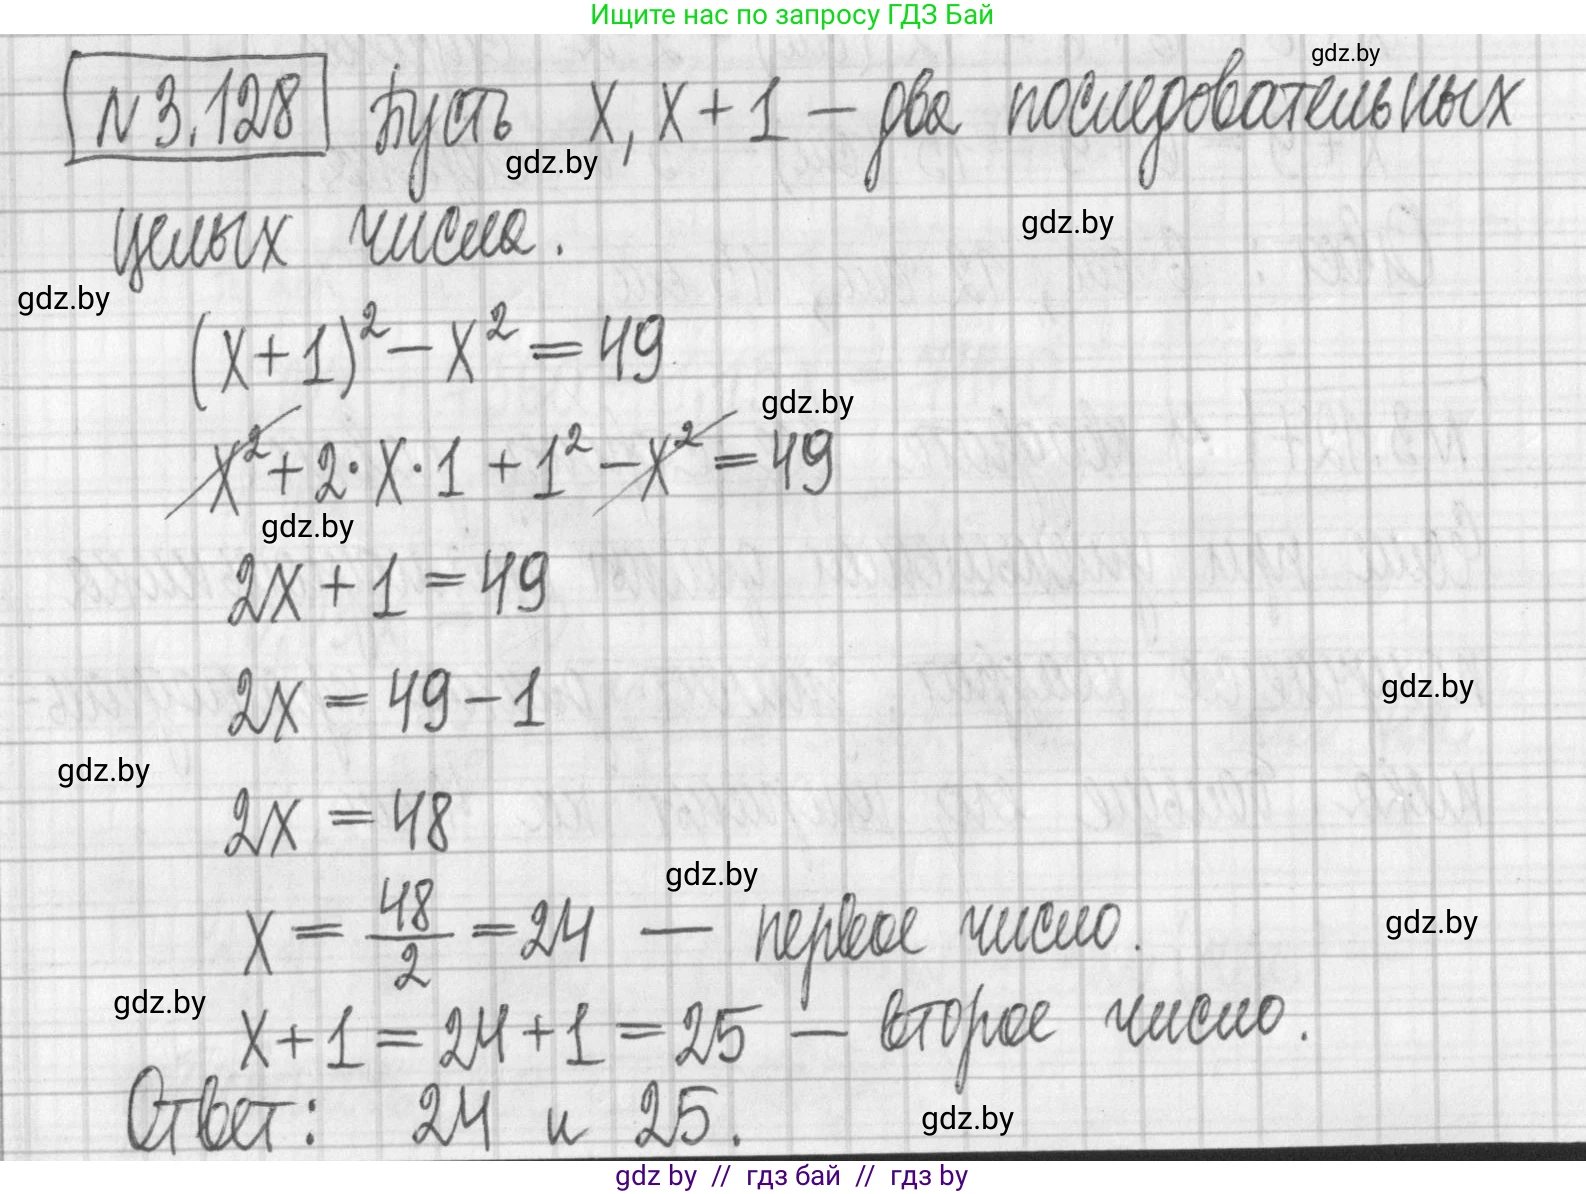 Ищите нас по запросу ГДЗ Бай
gdz.by
№3.128 Пусть x, x+1 – два последовательных
gdz.by
целых числа.
gdz.by
gdz.by
(x+1)² – x² = 49
gdz.by
x² + 2·x·1 + 1² – x² = 49
gdz.by
2x + 1 = 49
2x = 49 – 1
gdz.by
gdz.by
2x = 48
gdz.by
x = 48/2 = 24 — первое число.
gdz.by
gdz.by
x+1 = 24+1 = 25 — второе число.
Ответ: 24 и 25.
gdz.by
gdz by // гдз бай // гдз by